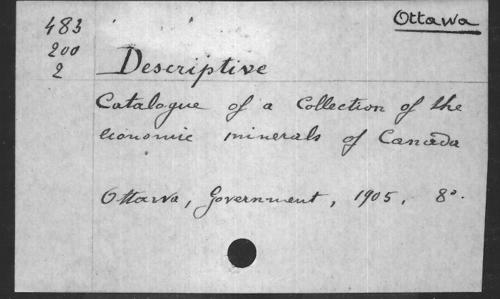 Ottawa
483
200
2
Descriptive
Catalogue of a Collection of the
economic minerals of Canada
Ottawa, Government, 1905, 8°.